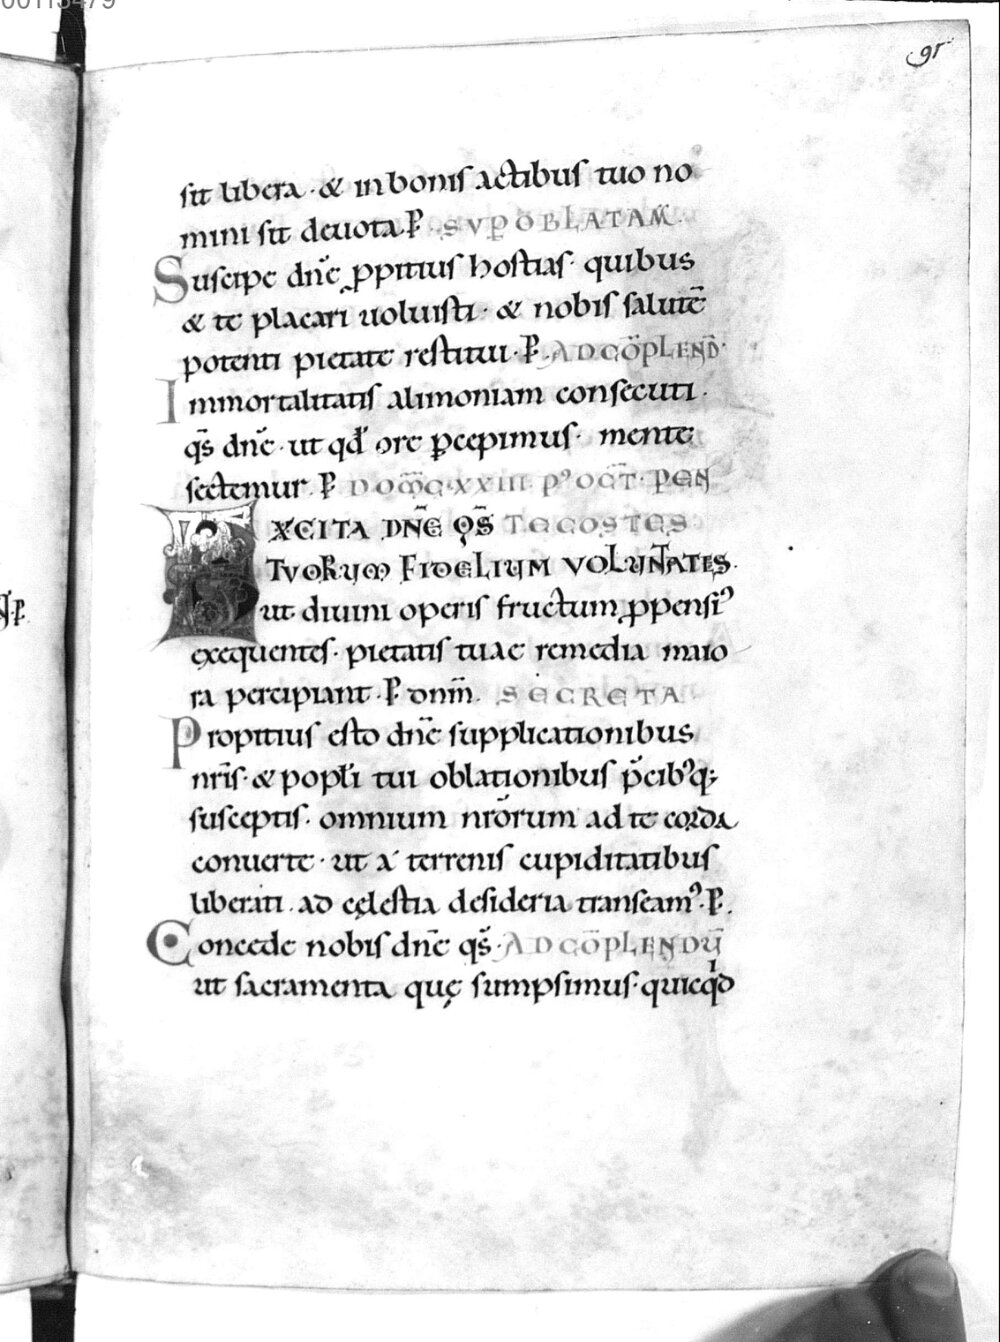 00113479
91
sit libera · & in bonis actibus tuo no
mini sit deuota. P̄ · SVP̱ OBLATAM̄ ·
Suscipe dn̄e ꝓpitius hostias · quibus
& te placari uoluisti · & nobis salutē
potenti pietate restitui · P̄ . AD CŌPLEND̄ ·
Immortalitatis alimoniam consecuti ·
qs̄ dn̄e · ut qd̄ ore ꝑcepimus · mente
sectemur . P̄ DOM̄C · XXIII P᾿ OCT̄ · PEN
EXCITA DN̄E QS̄ TECOSTES
TVORUM FIDELIUM VOLUNTATES ·
ut diuini operis fructum ꝓpensi᾿
exequentes · pietatis tuae remedia maio
ra percipiant · P̄ dnm̄ . SECRETA
Propitius esto dn̄e supplicationibus
nr̄is · & popłi tui oblationibus p̄cib᾿q;
susceptis · omnium nr̄orum ad te corda
conuerte · ut a᾿ terrenis cupiditatibus
liberati . ad cęlestia desideria transeam᾿ · P̄ .
Concede nobis dn̄e qs̄ · AD CŌPLENDŪ
ut sacramenta quę sumpsimus · quicqͥd